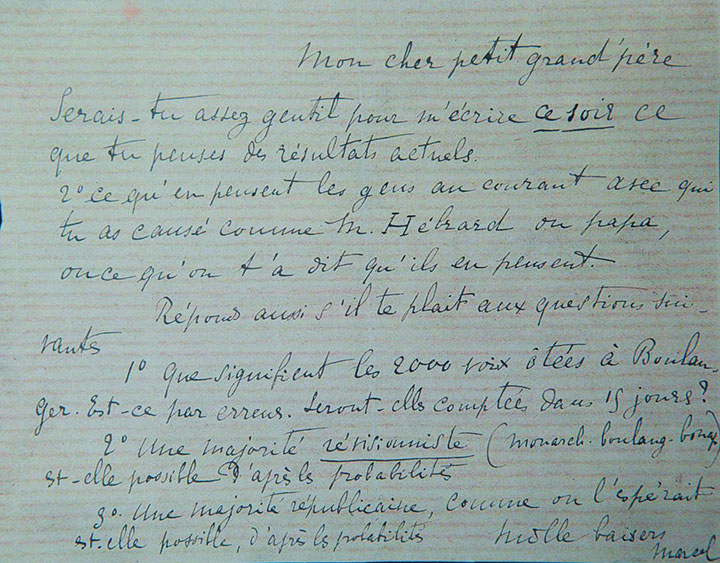 Mon cher petit grand'père
Serais-tu assez gentil pour m'écrire ce soir ce
que tu penses des résultats actuels.
2º ce qu'en pensent les gens au courant avec qui
tu as causé comme M. Hébrard ou papa,
ou ce qu'on t'a dit qu'ils en pensent.
Répond aussi s'il te plait aux questions sui-
vantes
1º que signifient les 2000 voix ôtées à Boulan-
ger. Est-ce par erreur. Seront-elles comptées dans 15 jours?
2º Une majorité révisionniste (monarch-boulang-bonap)
est-elle possible d'après les probabilités
3º. Une majorité républicaine, comme on l'espérait
est-elle possible, d'après les probabilités
Mille baisers
Marcel